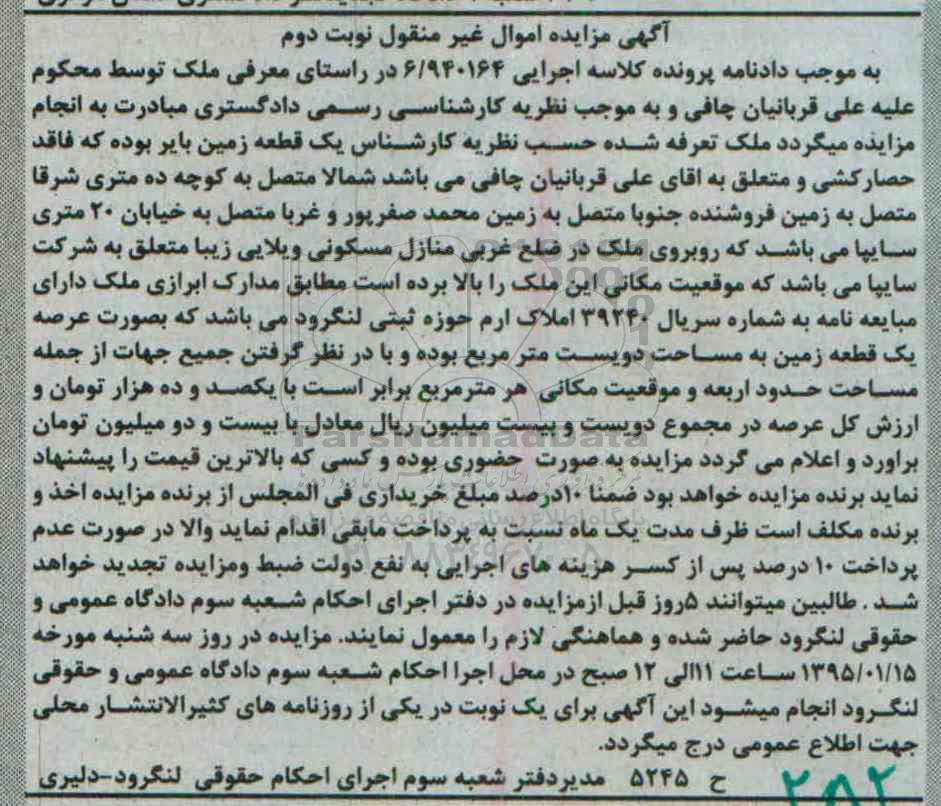 آگهی مزایده اموال غیر منقول نوبت دوم
به موجب دادنامه پرونده کلاسه اجرایی ۶/۹۴۰۱۶۴ در راستای معرفی ملک توسط محکوم
علیه علی قربانیان چافی و به موجب نظریه کارشناسی رسمی دادگستری مبادرت به انجام
مزایده میگردد ملک تعرفه شده حسب نظریه کارشناس یک قطعه زمین بایر بوده که فاقد
حصارکشی و متعلق به اقای علی قربانیان چافی می باشد شمالا متصل به کوچه ده متری شرقا
متصل به زمین فروشنده جنوبا متصل به زمین محمد صفرپور و غربا متصل به خیابان ۲۰ متری
سایپا می باشد که روبروی ملک در ضلع غربی منازل مسکونی ویلایی زیبا متعلق به شرکت
سایپا می باشد که موقعیت مکانی این ملک را بالا برده است مطابق مدارک ابرازی ملک دارای
مبایعه نامه به شماره سریال ۳۹۲۴۰ املاک ارم حوزه ثبتی لنگرود می باشد که بصورت عرصه
یک قطعه زمین به مساحت دویست متر مربع بوده و با در نظر گرفتن جمیع جهات از جمله
مساحت حدود اربعه و موقعیت مکانی هر مترمربع برابر است با یکصد و ده هزار تومان و
ارزش کل عرصه در مجموع دویست و بیست میلیون ریال معادل با بیست و دو میلیون تومان
براورد و اعلام می گردد مزایده به صورت حضوری بوده و کسی که بالاترین قیمت را پیشنهاد
نماید برنده مزایده خواهد بود ضمنا ۱۰درصد مبلغ خریداری فی المجلس از برنده مزایده اخذ و
برنده مکلف است ظرف مدت یک ماه نسبت به پرداخت مابقی اقدام نماید والا در صورت عدم
پرداخت ۱۰ درصد پس از کسر هزینه های اجرایی به نفع دولت ضبط ومزایده تجدید خواهد
شد . طالبین میتوانند ۵روز قبل ازمزایده در دفتر اجرای احکام شعبه سوم دادگاه عمومی و
حقوقی لنگرود حاضر شده و هماهنگی لازم را معمول نمایند. مزایده در روز سه شنبه مورخه
۱۳۹۵/۰۱/۱۵ ساعت ۱۱الی ۱۲ صبح در محل اجرا احکام شعبه سوم دادگاه عمومی و حقوقی
لنگرود انجام میشود این آگهی برای یک نوبت در یکی از روزنامه های کثیرالانتشار محلی
جهت اطلاع عمومی درج میگردد.
ح ۵۲۴۵ مدیردفتر شعبه سوم اجرای احکام حقوقی لنگرود-دلیری
۲۸۲
ParsNamadData